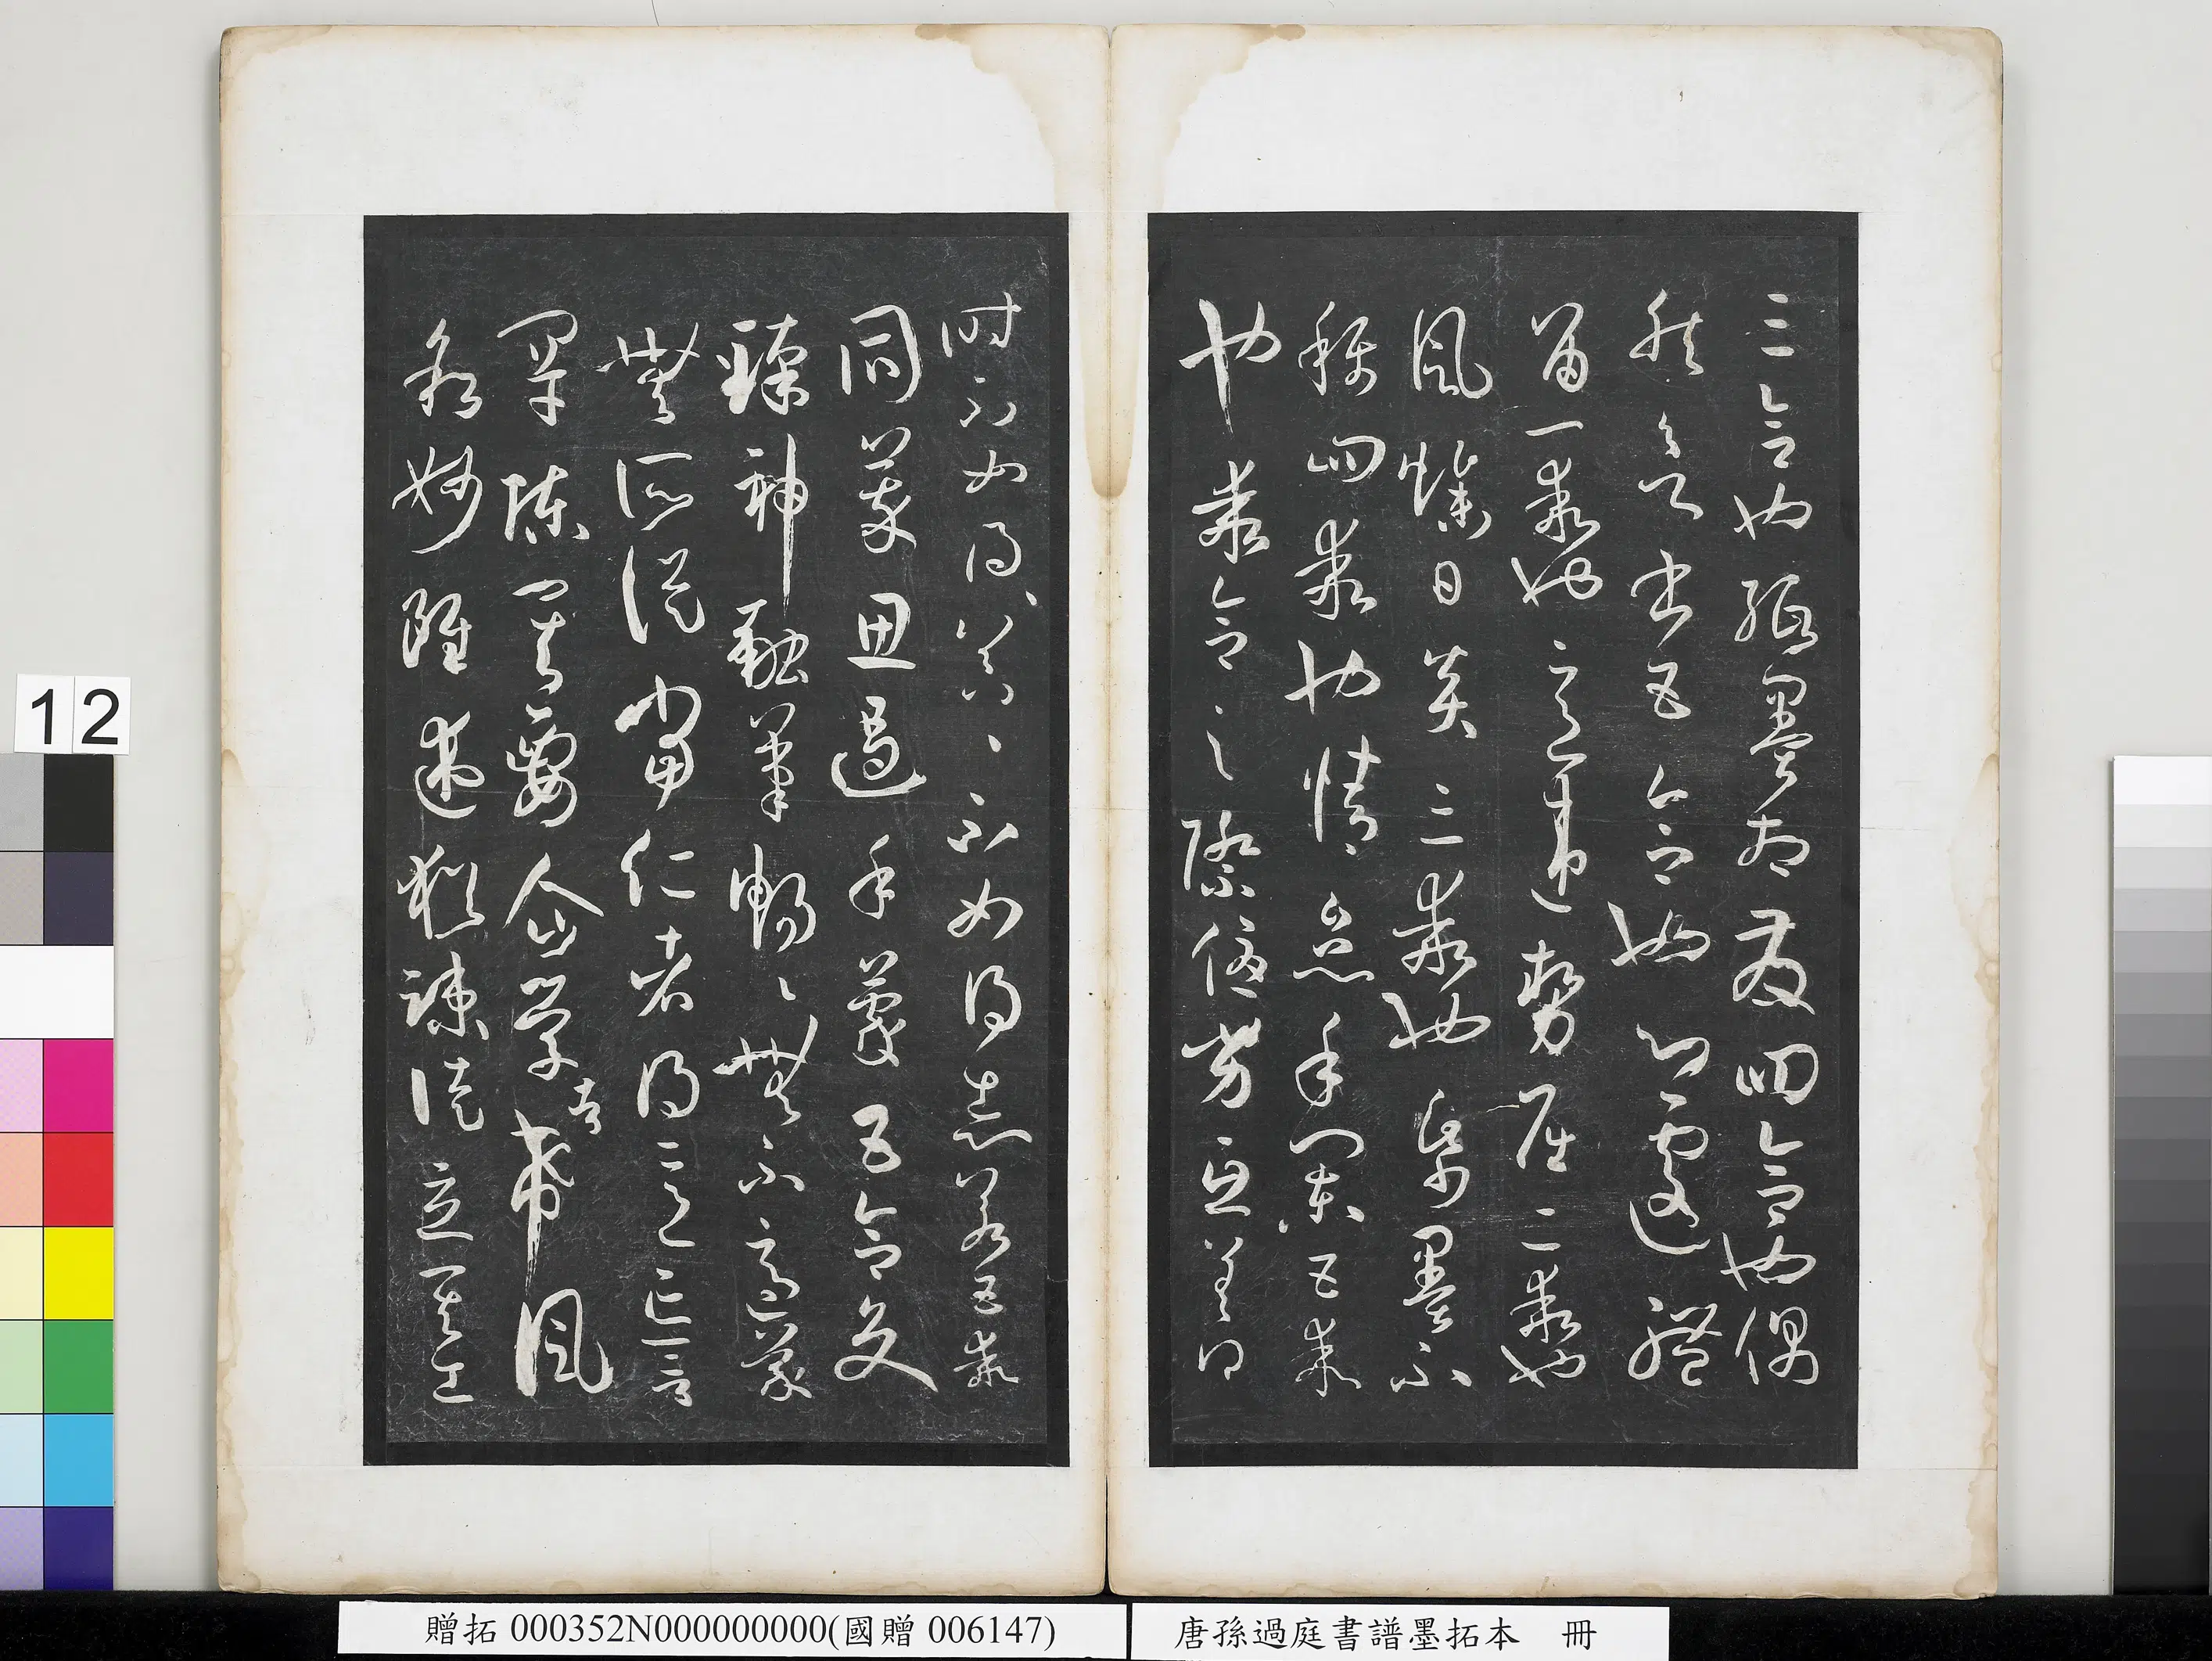 三合也紙墨相發四合也偶
然欲書五合也心遽體
留一乖也意違勢屈二乖也
風燥日炎三乖也紙墨不
稱四乖也情怠手闌五乖
也乖合之際優劣互差得
時不如得〻器〻不如得志若五乖
同萃思遏手蒙五合交
臻神融筆暢〻無不適蒙
無所從當仁者得意忘言
罕陳其要企學者希風
敘妙雖述猶疎徒立其工
12
贈拓 000352N000000000(國贈 006147)
唐孫過庭書譜墨拓本 冊